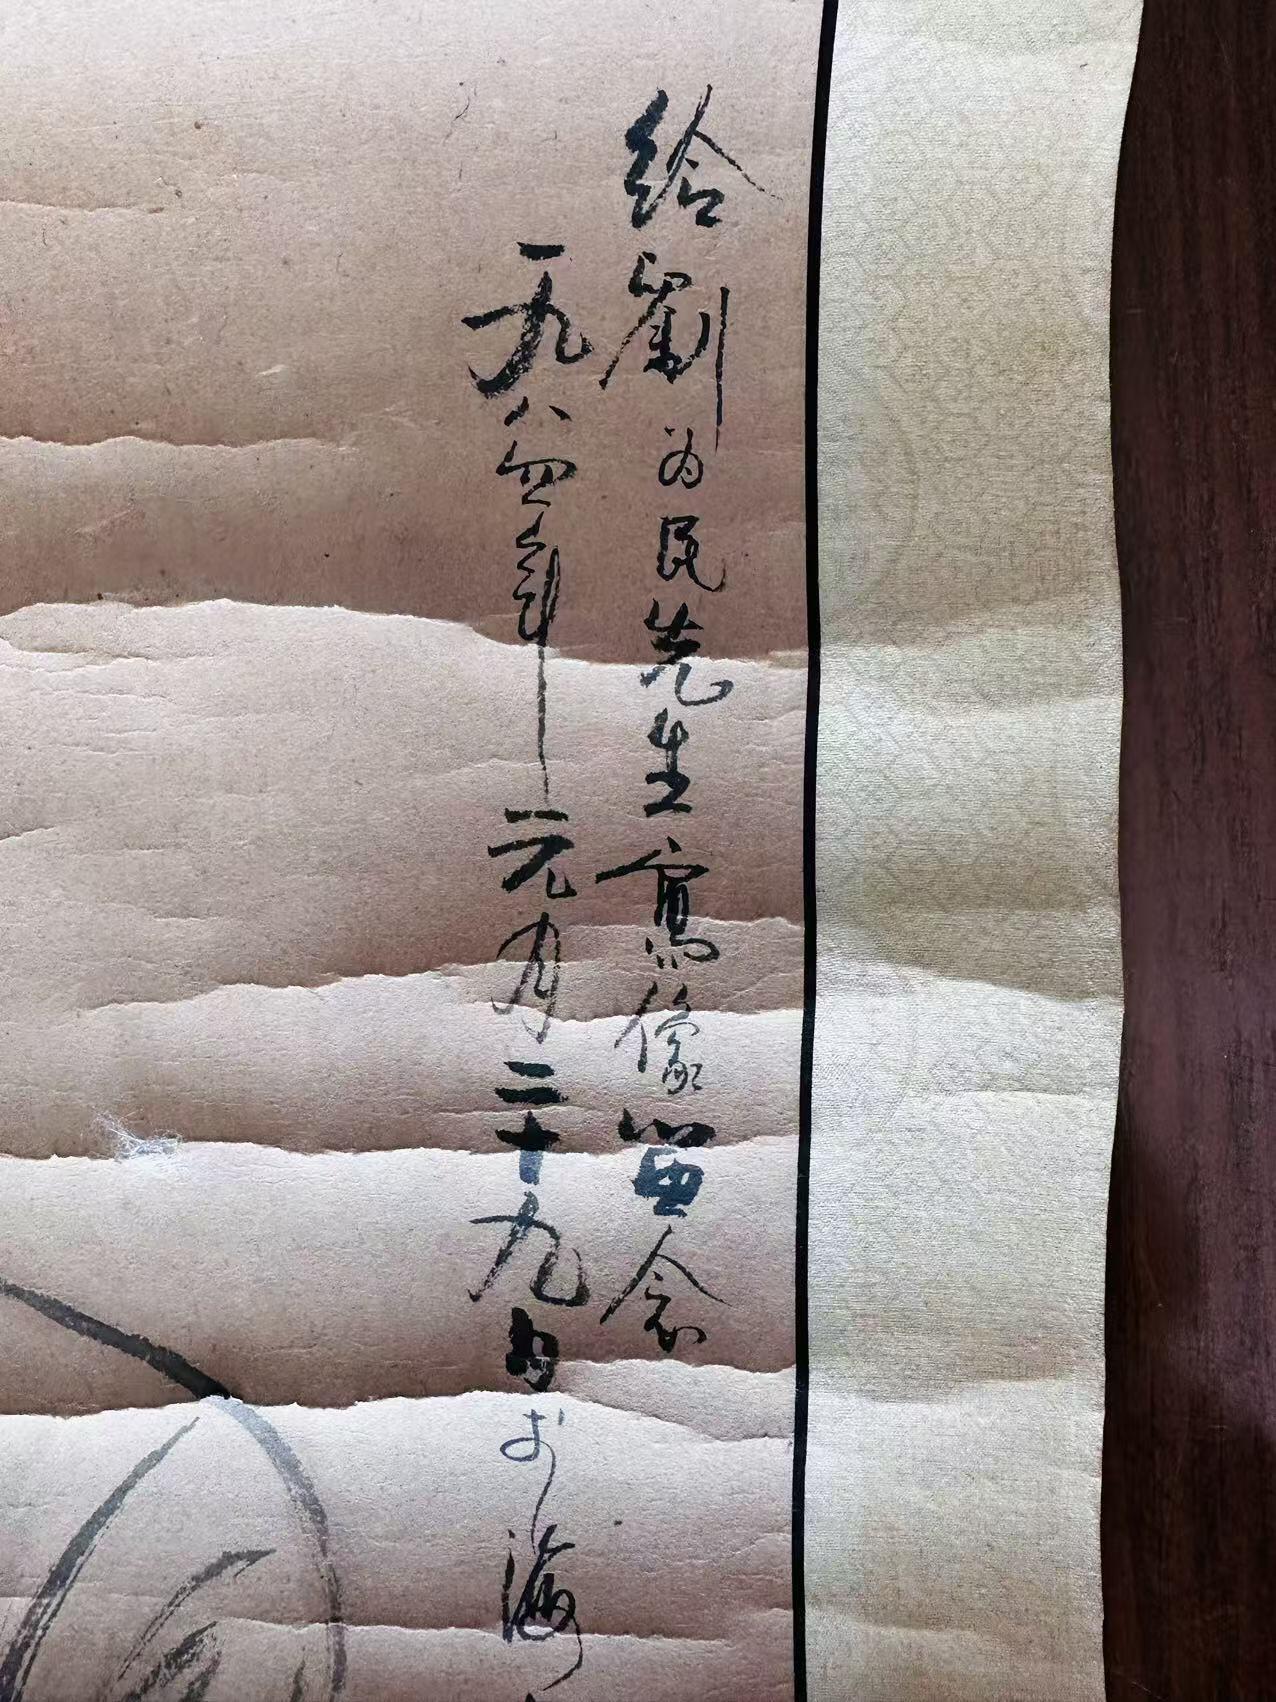 给劉为民先生寫像畱念
一九八四年元月二十九日于海